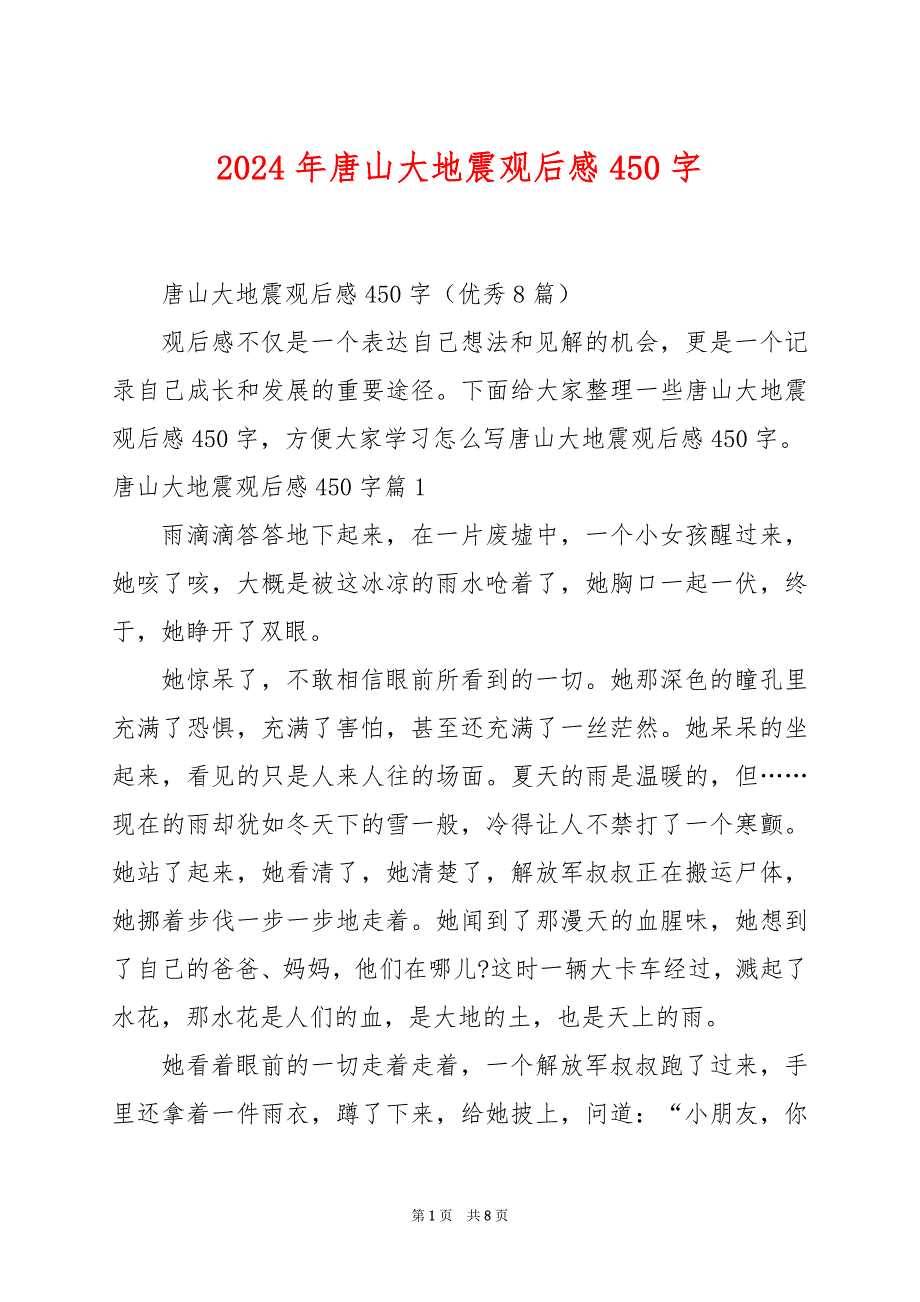 2024年唐山大地震观后感450字
唐山大地震观后感450字（优秀8篇）
观后感不仅是一个表达自己想法和见解的机会，更是一个记
录自己成长和发展的重要途径。下面给大家整理一些唐山大地震
观后感450字，方便大家学习怎么写唐山大地震观后感450字。
唐山大地震观后感450字篇1
雨滴滴答答地下起来，在一片废墟中，一个小女孩醒过来，
她咳了咳，大概是被这冰凉的雨水呛着了，她胸口一起一伏，终
于，她睁开了双眼。
她惊呆了，不敢相信眼前所看到的一切。她那深色的瞳孔里
充满了恐惧，充满了害怕，甚至还充满了一丝茫然。她呆呆的坐
起来，看见的只是人来人往的场面。夏天的雨是温暖的，但……
现在的雨却犹如冬天下的雪一般，冷得让人不禁打了一个寒颤。
她站了起来，她看清了，她清楚了，解放军叔叔正在搬运尸体，
她挪着步伐一步一步地走着。她闻到了那漫天的血腥味，她想到
了自己的爸爸、妈妈，他们在哪儿?这时一辆大卡车经过，溅起了
水花，那水花是人们的血，是大地的土，也是天上的雨。
她看着眼前的一切走着走着，一个解放军叔叔跑了过来，手
里还拿着一件雨衣，蹲了下来，给她披上，问道：“小朋友，你
第1页 共8页